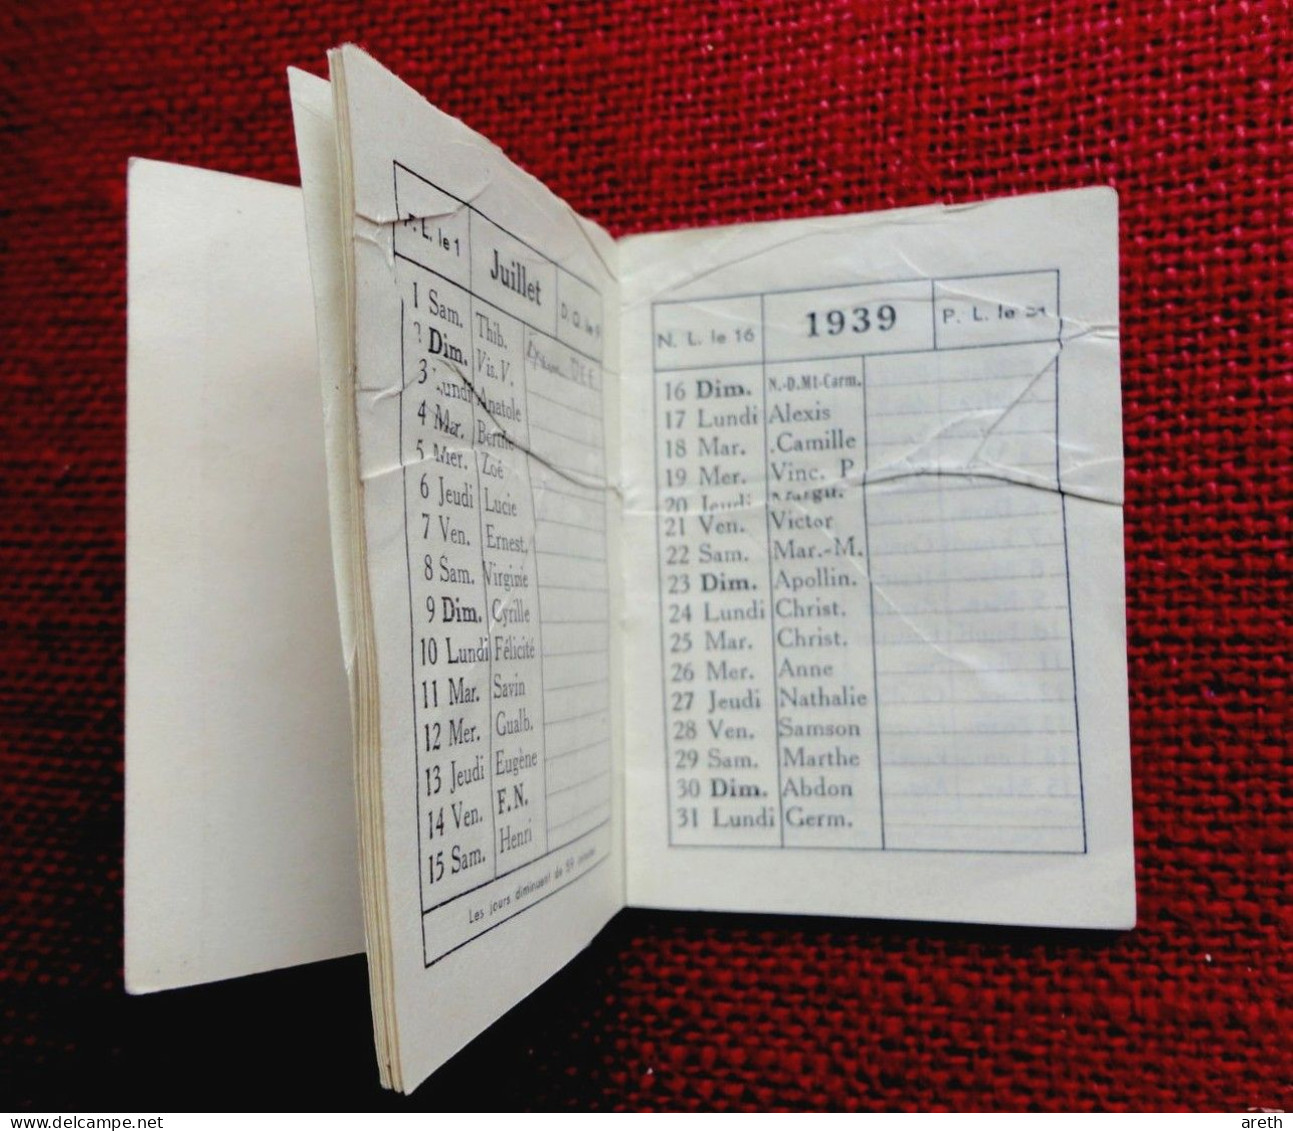 P. L. le 1 Juillet D. Q. le 9
1 Sam. Thib.
2 Dim. Vis. V.
3 Lundi Anatole
4 Mar. Berthe
5 Mer. Zoé
6 Jeudi Lucie
7 Ven. Ernest.
8 Sam. Virginie
9 Dim. Cyrille
10 Lundi Félicité
11 Mar. Savin
12 Mer. Gualb.
13 Jeudi Eugène
14 Ven. F. N.
15 Sam. Henri
Les jours diminuent de 59 minutes
N. L. le 16 1939 P. L. le 31
16 Dim. N.-D.Mt-Carm.
17 Lundi Alexis
18 Mar. .Camille
19 Mer. Vinc. P.
20 Jeudi Margu.
21 Ven. Victor
22 Sam. Mar.-M.
23 Dim. Apollin.
24 Lundi Christ.
25 Mar. Christ.
26 Mer. Anne
27 Jeudi Nathalie
28 Ven. Samson
29 Sam. Marthe
30 Dim. Abdon
31 Lundi Germ.
www.delcampe.net
areth